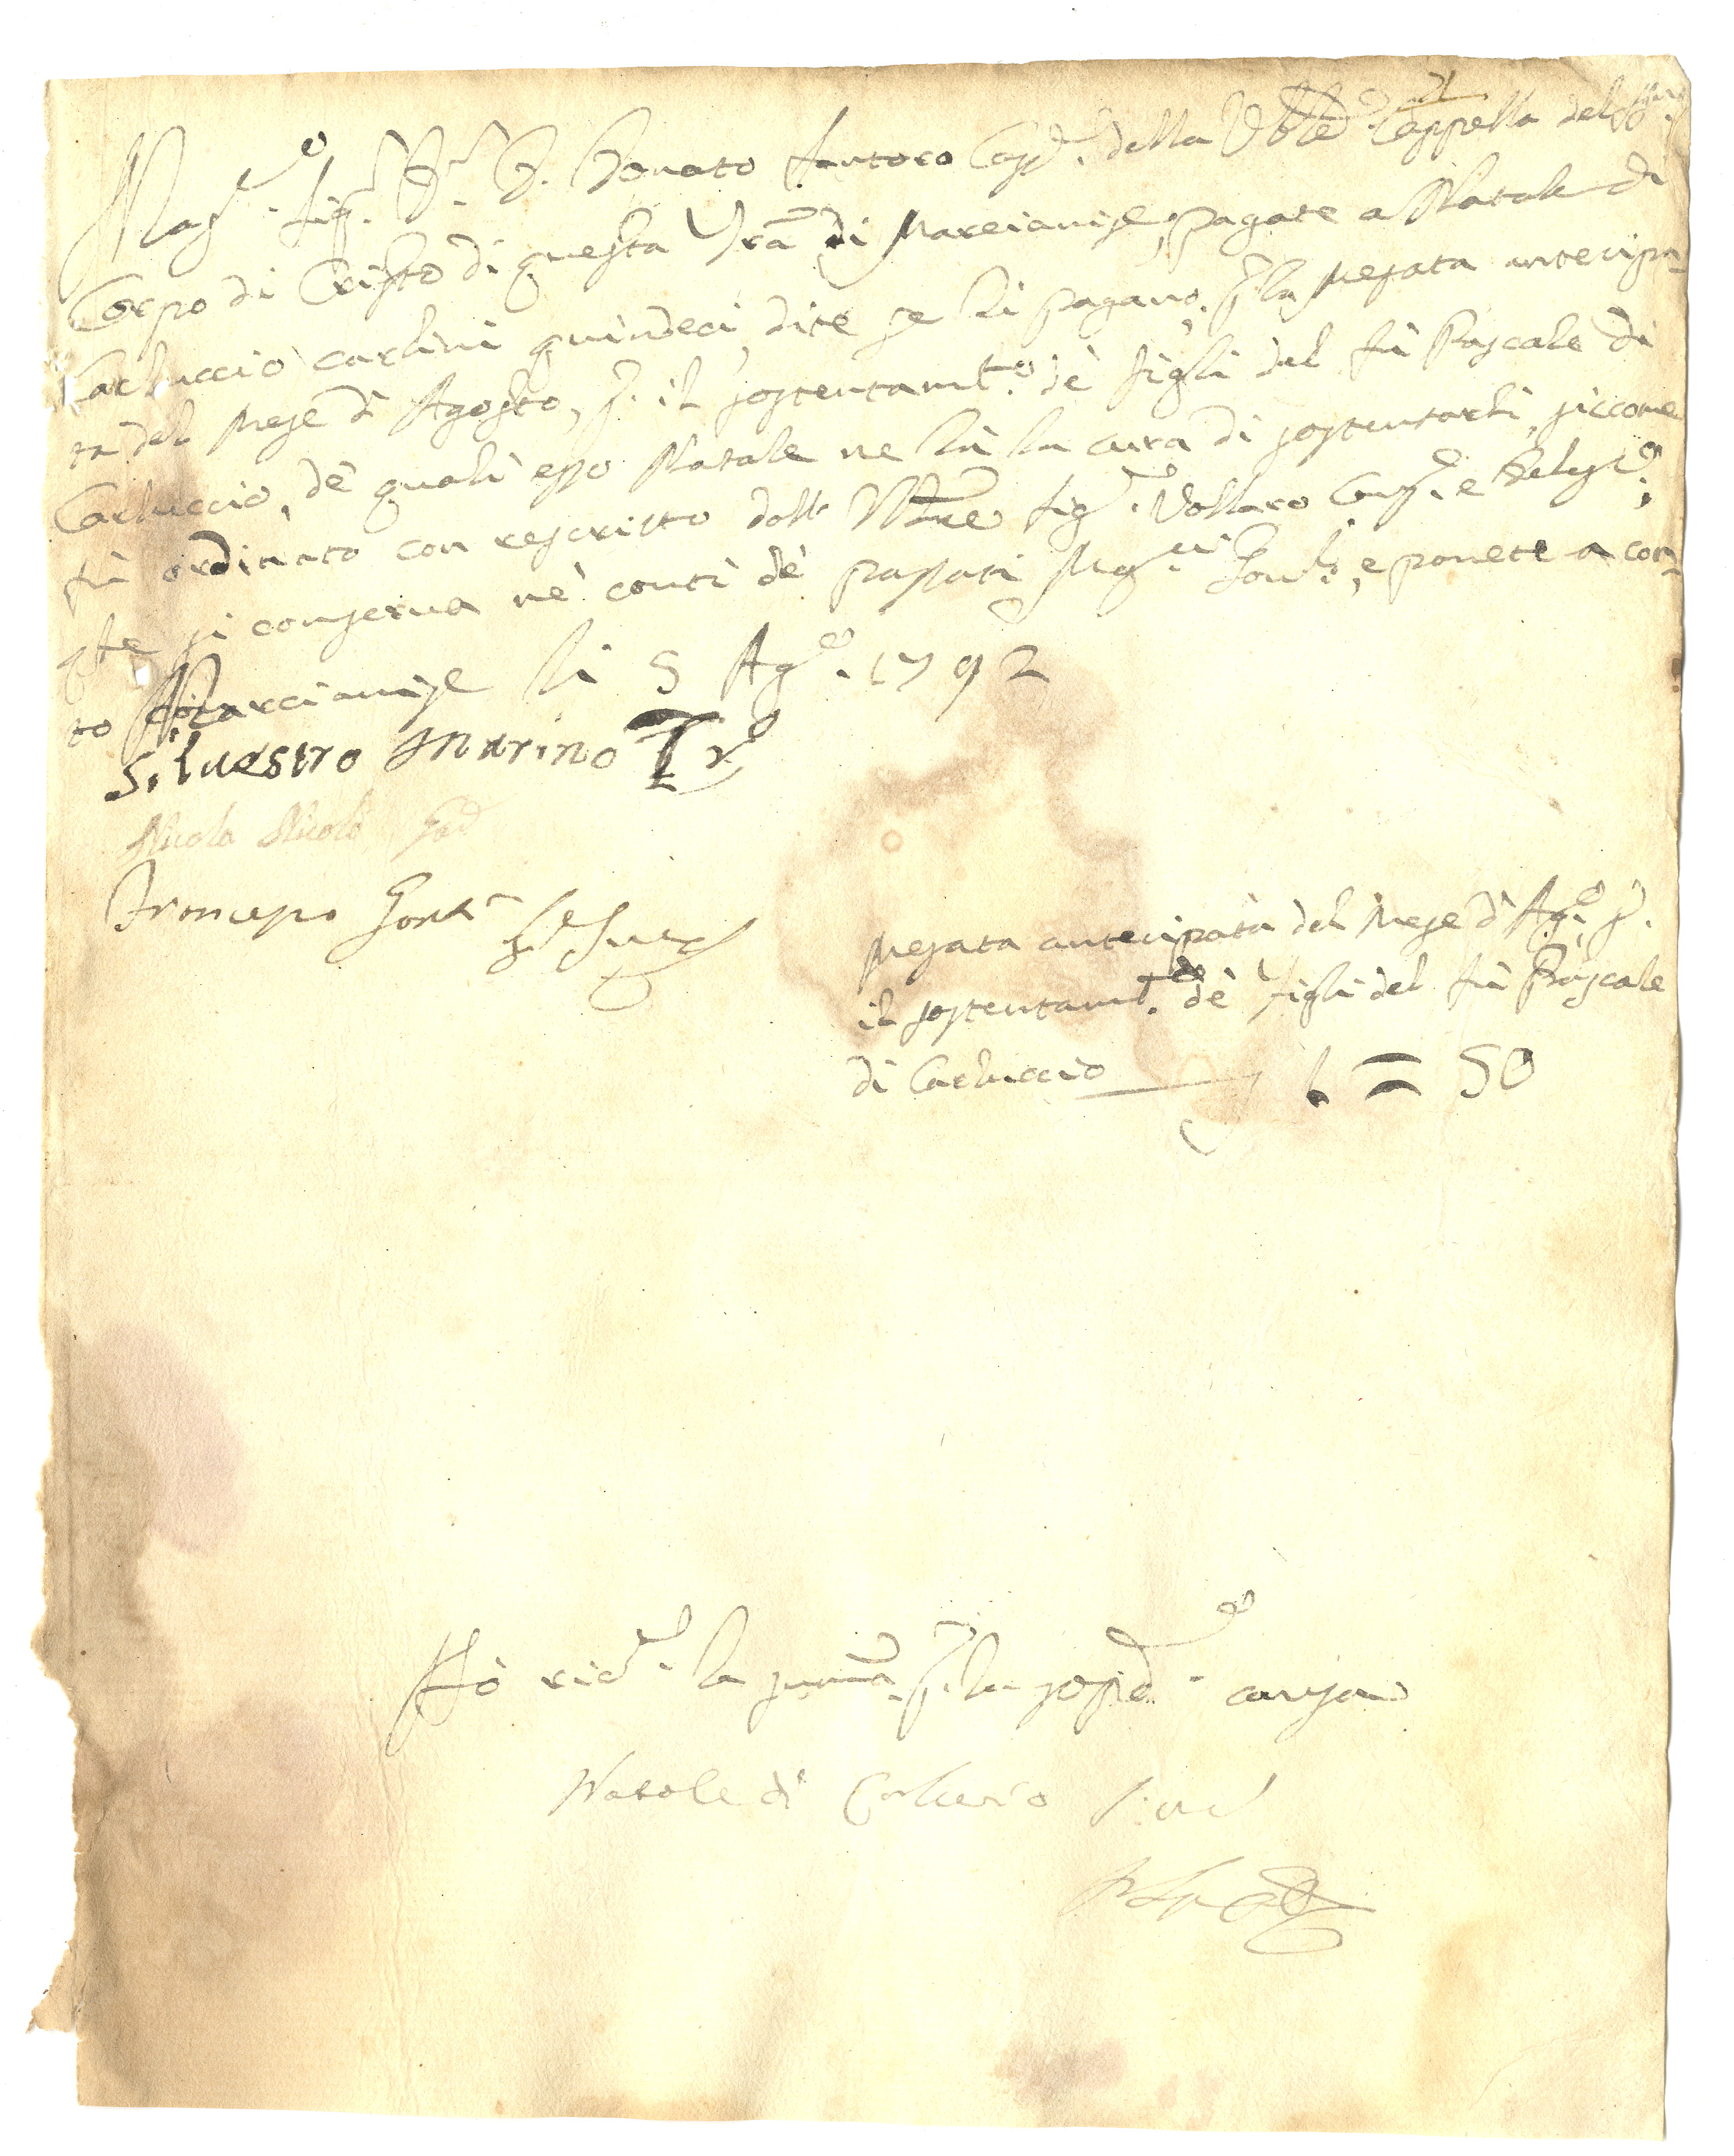 Mag.co Sig.r D.r D. Donato Santoro Cass.e della Ven.le Cappella del SS.mo
Corpo di Cristo di questa Trã di Marcianise, pagate a Natale di
Carluccio carlini quindeci, dite se li pagano p. la mesata antecipa-
ta del mese di Agosto, p. il sostentam.to de' figli del fù Pascale di
Carluccio, de' quali esso Natale ne hà la cura di sostentarli, siccome
fù ordinato con rescritto dall' Sig.r Vollaro Com.o e Deleg.o,
q̃le si conserva ne' conti de' passati Mag.ci Gov.ri, e ponete a con-
to Marcianise li 5 Ag.o 1792
Siluestro Marino
Nicola Nicolò
Mesata antecipata del mese di Ag.o p.
il sostentam.to de' figli del fù Pascale
di Carluccio 1 = 50
Hò ric.to la summa p. la sop.a causa
Natale di Carluccio